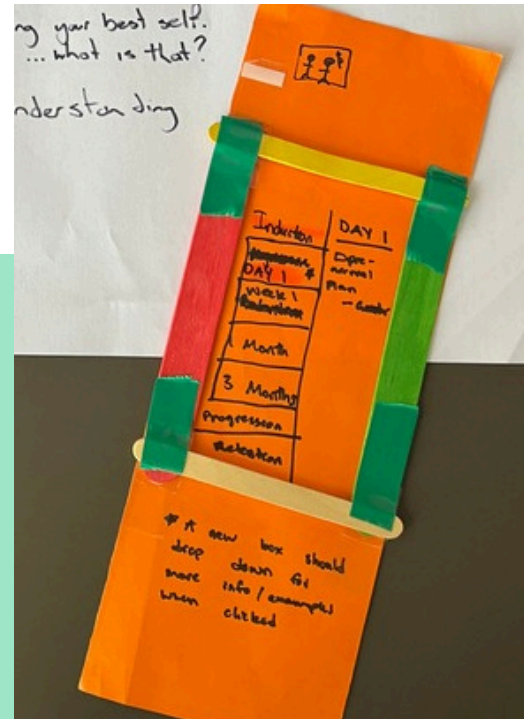 ng your best self.
... what is that?
nderstanding
Induction
DAY 1
Week 1
1 Month
3 Months
Progression
Retention
DAY 1
pre-
arrival
Plan
* A new box should
drop down for
more info/examples
when clicked